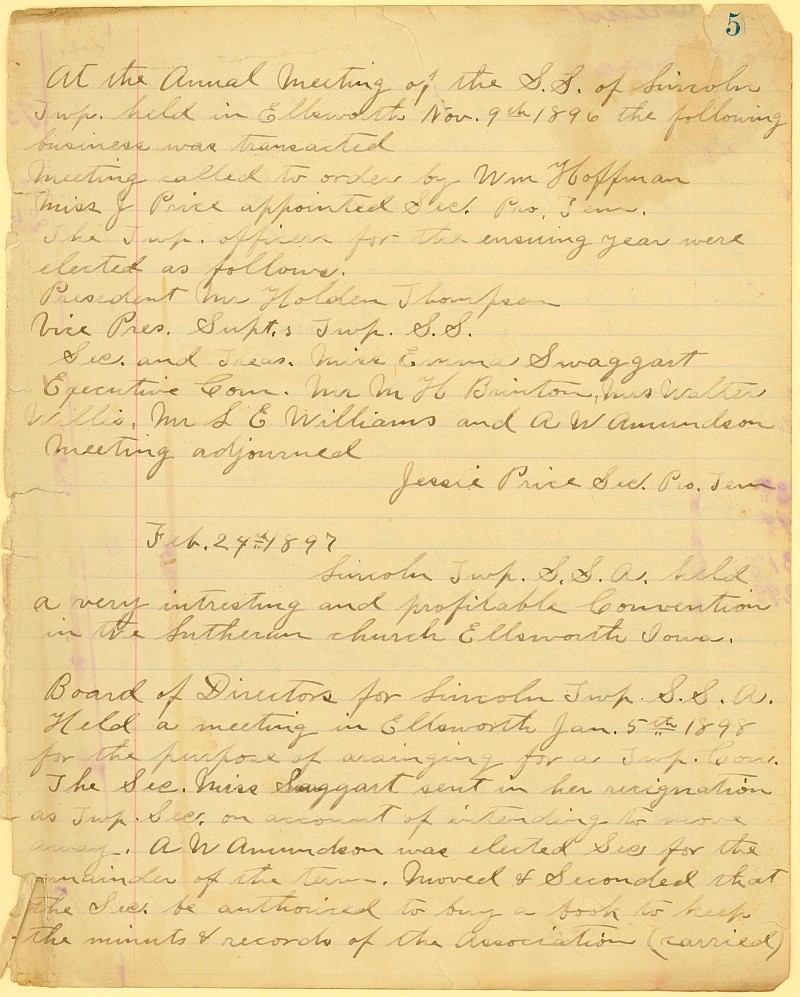 5
At the Annual Meeting of the S.S. of Lincoln
Twp. held in Ellsworth Nov. 9th 1896 the following
business was transacted
Meeting called to order by Wm Hoffman
Miss J Price appointed Sec. Pro. Tem.
The Twp. officers for the ensuing year were
elected as follows.
President Mr Holden Thompson
Vice Pres. Supt.s Twp. S.S.
Sec. and Treas. Miss Emma Swaggart
Executive Com. Mr M H Brinton, Mrs Walter
Willis, Mr L E Williams and A W Amundson
Meeting adjourned
Jessie Price Sec. Pro. Tem
Feb. 24th 1897
Lincoln Twp. S.S.A. held
a very intresting and profitable Convention
in the Lutheran church Ellsworth Iowa.
Board of Directors for Lincoln Twp. S.S.A.
Held a meeting in Ellsworth Jan. 5th 1898
for the purpose of arainging for a Twp. Con.
The Sec. Miss Swaggart sent in her resignation
as Twp. Sec. on account of intending to move
away. A W Amundson was elected Sec for the
remainder of the term. Moved & Seconded that
the Sec. be authorized to buy a book to keep
the minuts & records of the Association (carried)